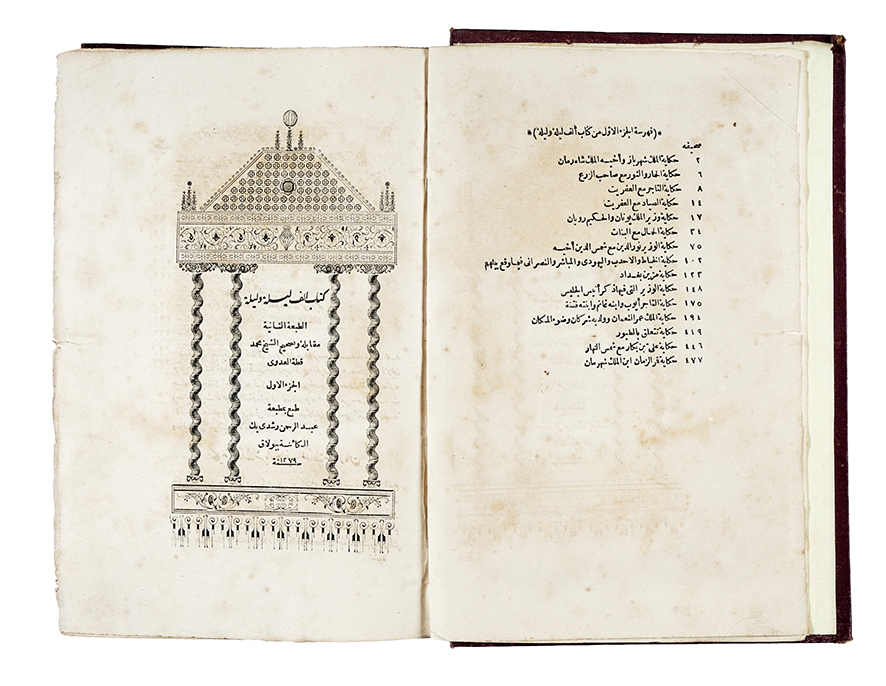 ﴿فهرسة الجزء الاول من كتاب ألف ليلة وليلة﴾
صحيفه
٢ حكاية الملك شهرباز وأخيه الملك شاه زمان
٦ حكاية الحمار والثور مع صاحب الزرع
٨ حكاية التاجر مع العفريت
١٤ حكاية الصياد مع العفريت
١٧ حكاية وزير الملك يونان والحكيم رويان
٣٤ حكاية الحمال مع البنات
٧٥ حكاية الوزير نور الدين مع شمس الدين أخيه
١٠٢ حكاية الخياط والاحدب واليهودى والمباشر والنصرانى فيما وقع بينهم
١٢٣ حكاية مزين بغداد
١٤٨ حكاية الوزير التى فيها ذكر أنيس الجليس
١٧٥ حكاية التاجر أيوب وابنه غانم وابنته فتنة
١٩٤ حكاية الملك عمر النعمان وولديه شركان وضوء المكان
٤١٩ حكاية تتعلق بالطيور
٤٤٦ حكاية على بن بكار مع شمس النهار
٤٧٧ حكاية قمر الزمان ابن الملك شهرمان
كتاب الف ليلة وليلة
الطبعة الثانية
مقابلة وتصحيح الشيخ محمد
قطة العدوى
الجزء الاول
طبع بمطبعة
عبد الرحمن رشدى بك
الكائنة ببولاق
سنة ١٢٧٩